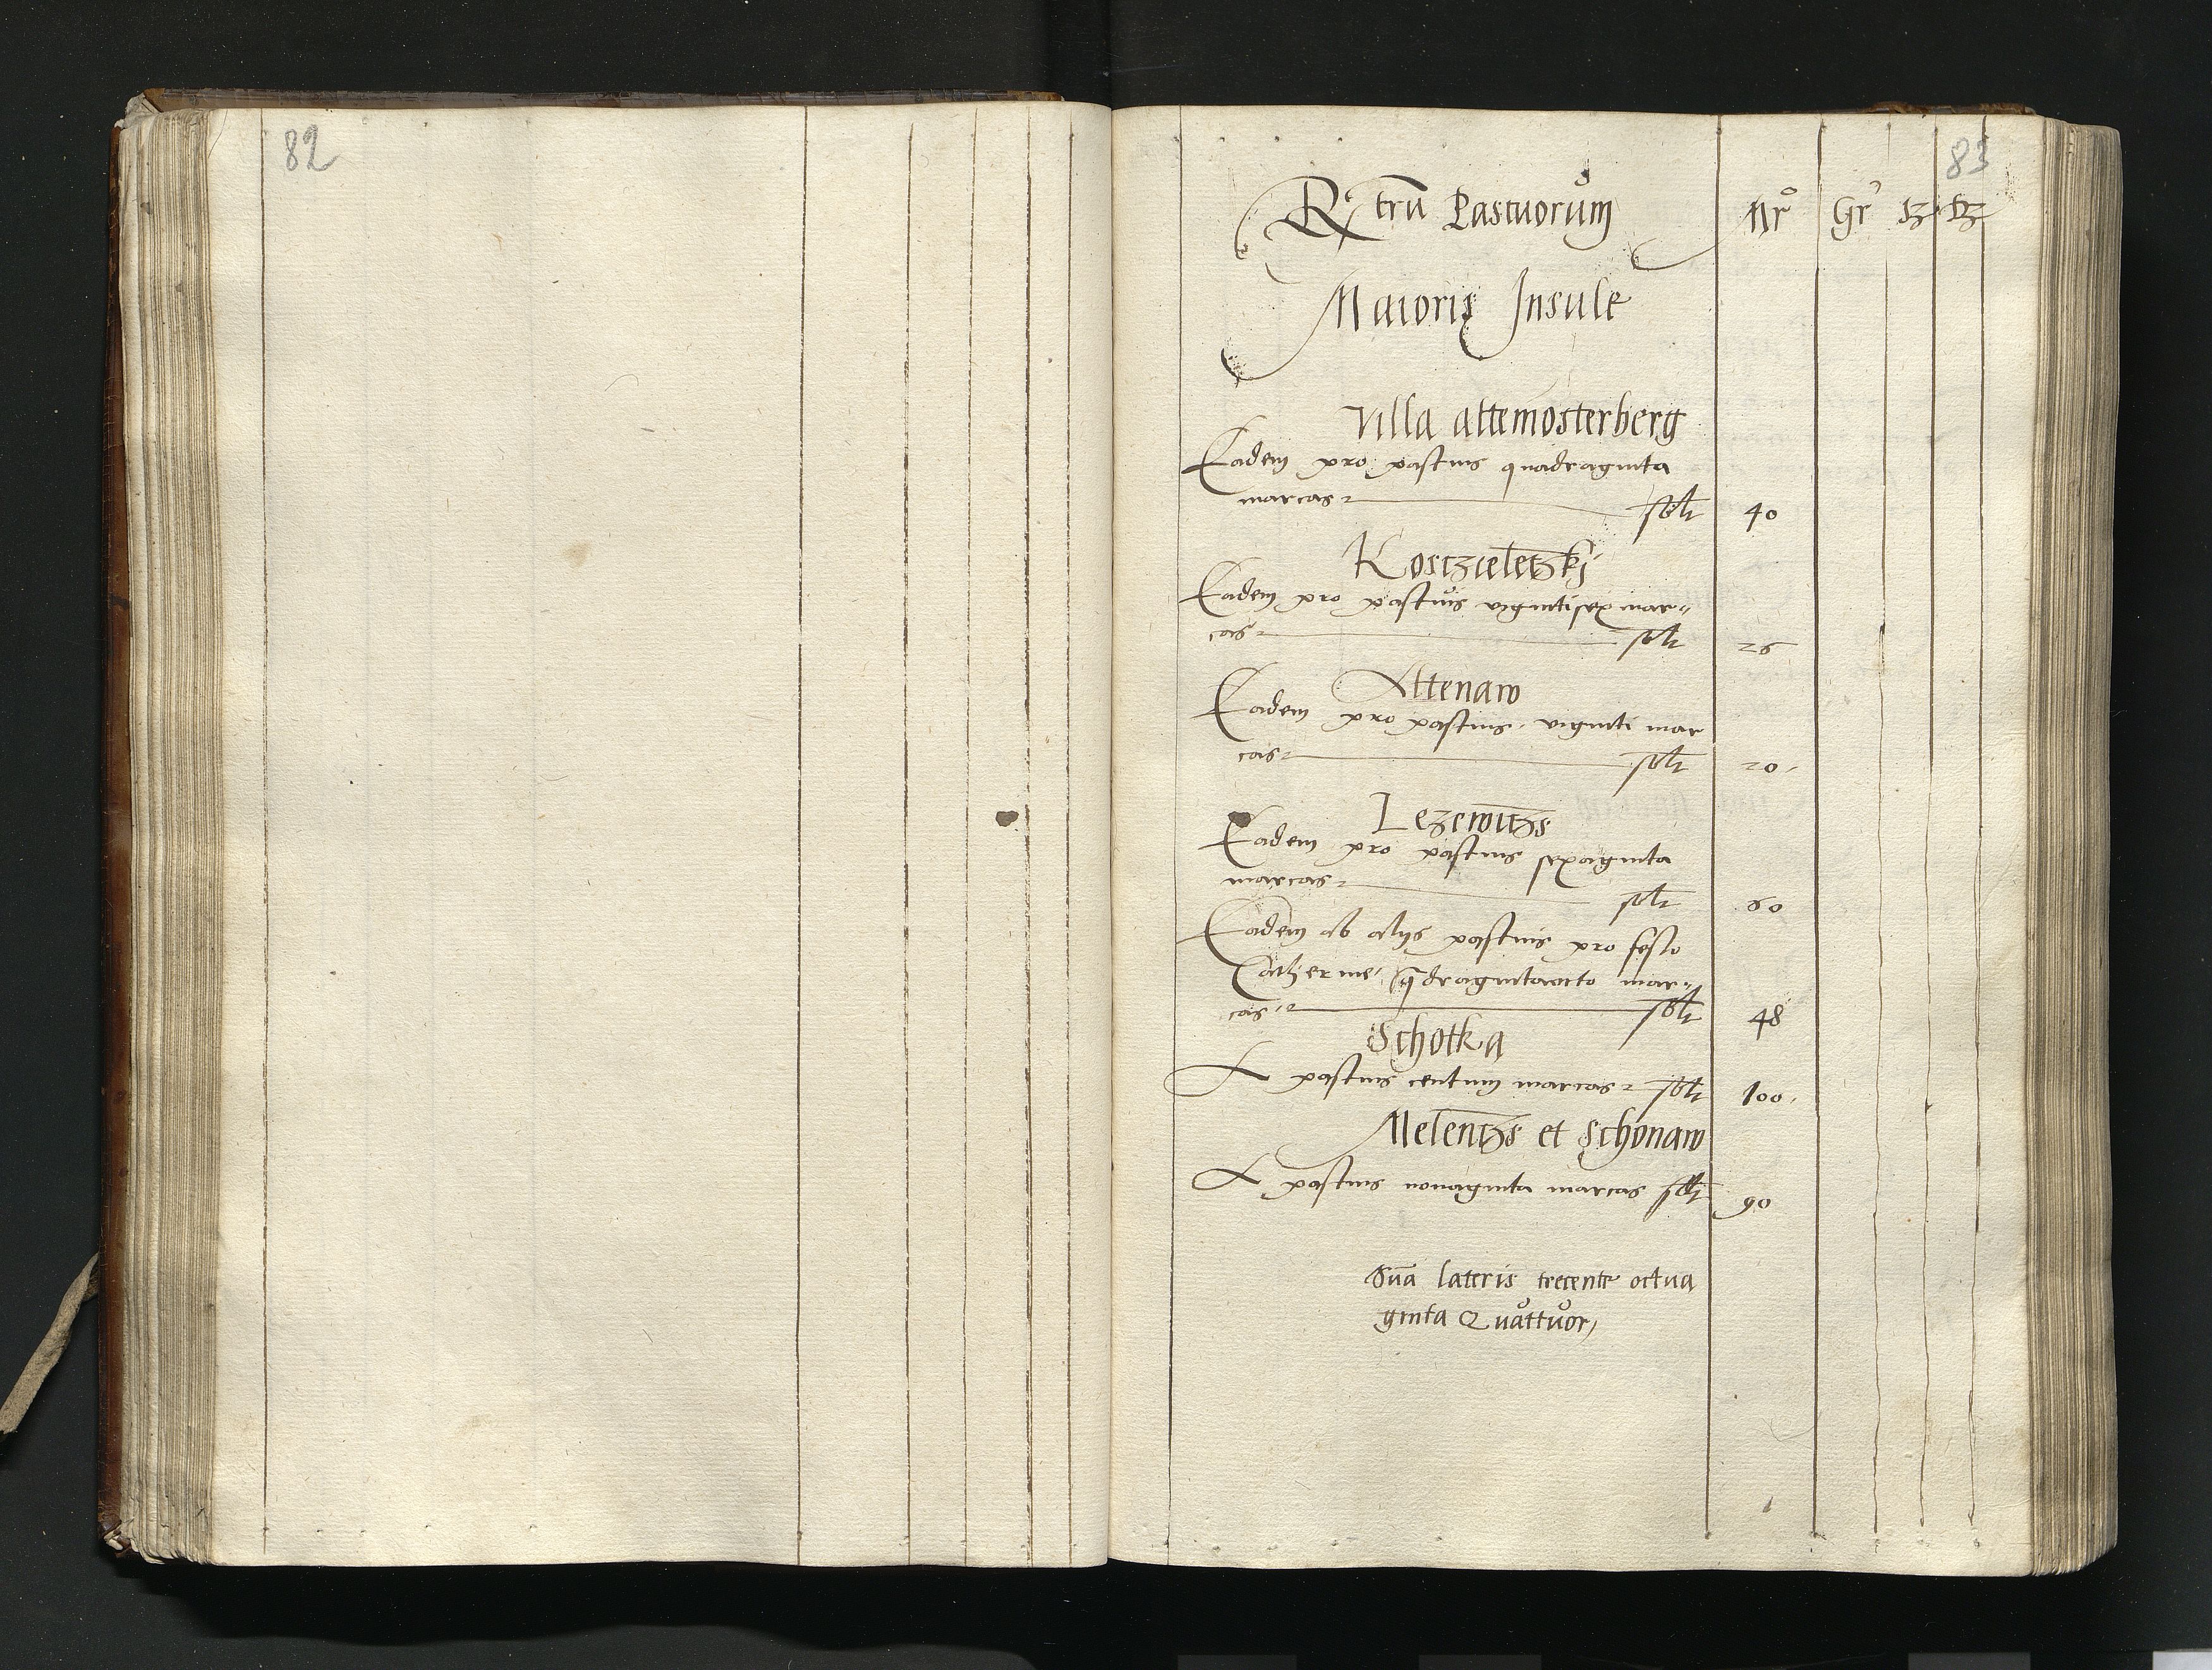 82
83
Rtrū Pascuorum
Mr Gr
Maioris Insule
Villa altemosterberg
Eadem pro pascuis quadraginta
marcas solt 40
Kosczieletzkj
Eadem pro pascuis vigintisex mar„
cas solt 26
Altenaw
Eadem pro pascuis viginti mar
cas solt 20
Lezewitzs
Eadem pro pascuis sexaginta
marcas solt 60
Eadem ab alijs pascuis pro festo
Catherine, qdragintaocto mar„
cas solt 48
Schotka
A pascuis centum marcas solt 100
Melentzs et Schonaw
A pascuis nonaginta marcas solt 90
Sūa lateris trecente octua
ginta Quattuor,